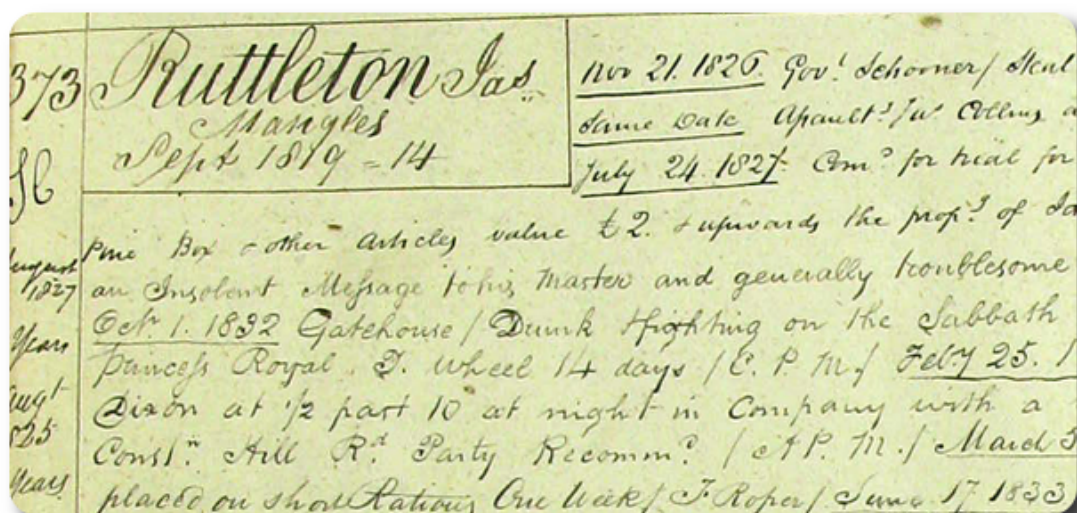 373
Ruttleton Jas
Mangles
Sept 1819 = 14
Nov 21. 1826. Govt Schooner /
Same Date Apault.g Jno. Collins
July 24. 1827. Com.d for trial for
August
1827
Years
Augt
1825
Years
Pine Box & other articles value £2. & upwards the prop.y of
an Insolent Message to his Master and generally troublesome
Octr. 1. 1832 Gatehouse / Drunk & fighting on the Sabbath
Princess Royal T. wheel 14 days / C. P. M. / Feby 25. 1
Dixon at 1/2 past 10 at night in Company with a
Const.n Hill R.d Party Recomm.d / A P. M. / March
placed on short Rations One Week / J. Roper / June 17 1833